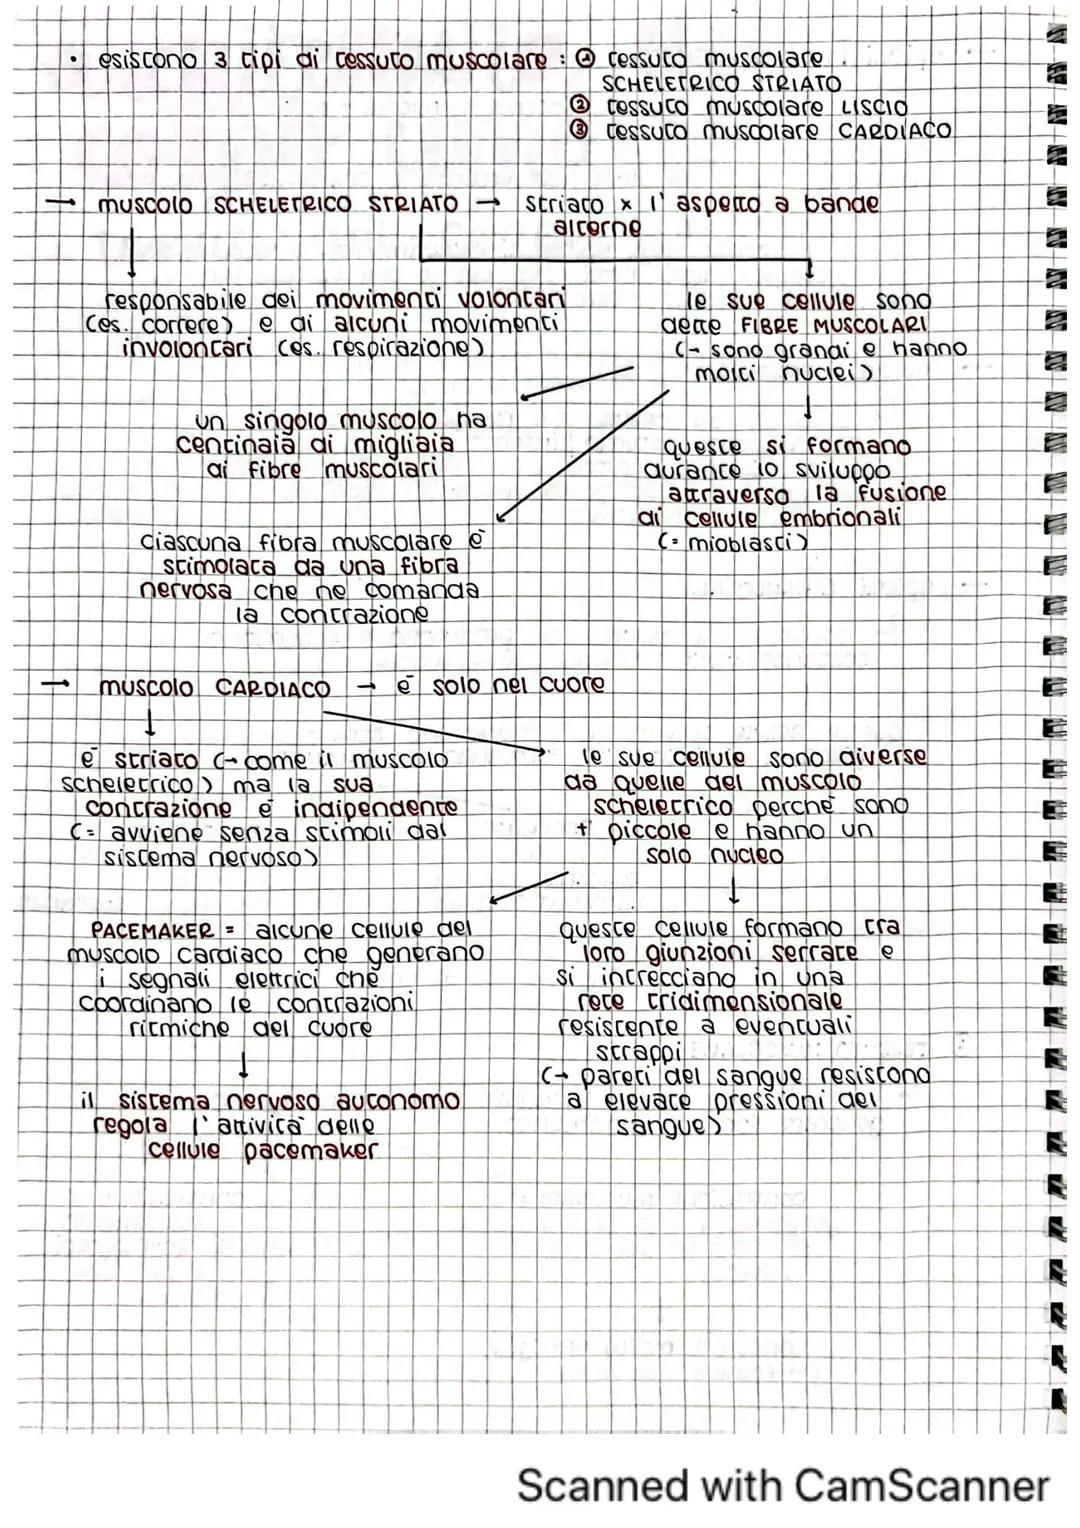 • esistono 3 tipi di tessuto muscolare : ① tessuto muscolare
SCHELETRICO STRIATO
② tessuto muscolare LISCIO
③ tessuto muscolare CARDIACO
→ muscolo SCHELETRICO STRIATO → striato x l'aspetto a bande
alterne
responsabile dei movimenti volontari
(es. correre) e di alcuni movimenti
involontari (es. respirazione)
le sue cellule sono
dette FIBRE MUSCOLARI
(→ sono grandi e hanno
molti nuclei)
un singolo muscolo ha
centinaia di migliaia
di fibre muscolari
queste si formano
durante lo sviluppo
attraverso la fusione
di cellule embrionali
(= mioblasti)
ciascuna fibra muscolare è
stimolata da una fibra
nervosa che ne comanda
la contrazione
→ muscolo CARDIACO → è solo nel cuore
è striato (→ come il muscolo
scheletrico) ma la sua
contrazione è indipendente
(= avviene senza stimoli dal
sistema nervoso)
le sue cellule sono diverse
da quelle del muscolo
scheletrico perchè sono
+ piccole e hanno un
solo nucleo
PACEMAKER = alcune cellule del
muscolo cardiaco che generano
i segnali elettrici che
coordinano le contrazioni
ritmiche del cuore
queste cellule formano tra
loro giunzioni serrate e
si intrecciano in una
rete tridimensionale
resistente a eventuali
strappi
(→ pareti del sangue resistono
a elevate pressioni del
sangue)
il sistema nervoso autonomo
regola l'attività delle
cellule pacemaker
Scanned with CamScanner